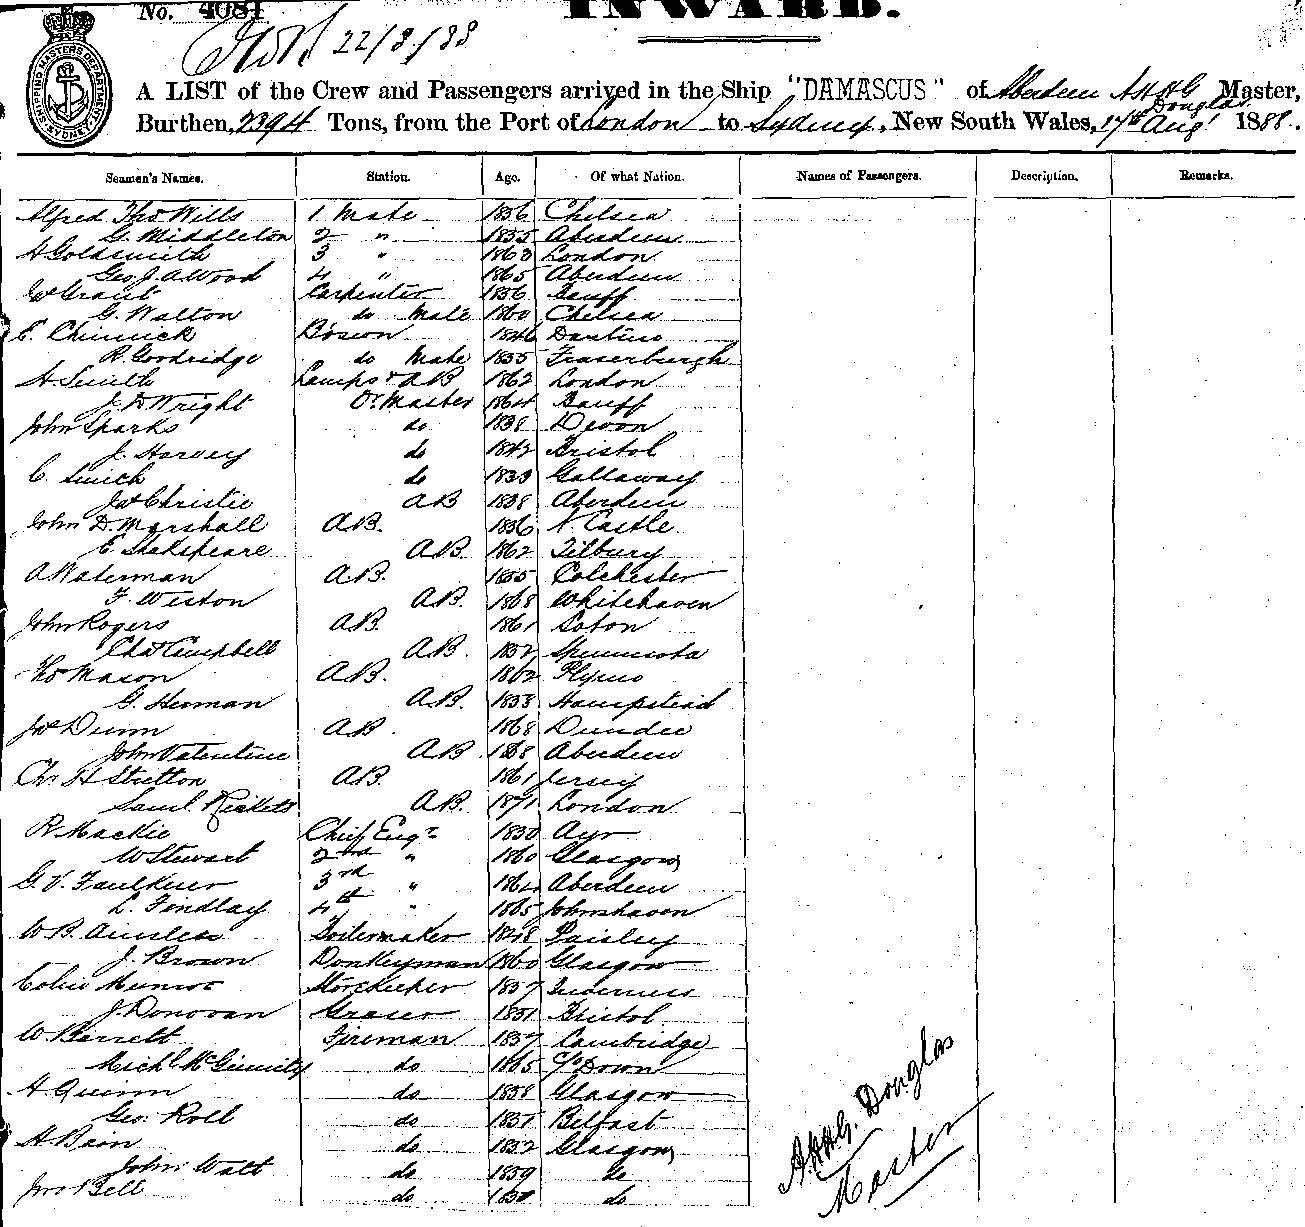 No. 4081
INWARD.
22/8/88
SHIPPING MASTERS DEPARTMENT SYDNEY
A LIST of the Crew and Passengers arrived in the Ship "DAMASCUS" of Aberdeen A H H G Douglas Master,
Burthen, 2394 Tons, from the Port of London to Sydney, New South Wales, 17th Augt 1888.
Seamen's Names. Station. Age. Of what Nation. Names of Passengers. Description. Remarks.
Alfred Tho Wills 1 Mate 1856 Chelsea
G. Middleton 2 " 1855 Aberdeen
A Goldsmith 3 " 1863 London
Geo J. A Wood 4 " 1865 Aberdeen
Grant Carpenter 1856 Banff
G. Walton do Mate 1860 Chelsea
E. Chinnick Bosun 1846
R. Goodridge do Mate 1855 Fraserburgh
A Smith Lamps & AB 1862 London
J. D Wright Qr Master 1864 Banff
John Sparks do 1838 Devon
J. Harvey do 1842 Bristol
C. Smith do 1833 Gallaway
Jas Christie AB 1838 Aberdeen
John D. Marshall A.B. 1836 N. Castle
E Shakspeare A.B. 1862 Tilbury
A Waterman A.B. 1855 Colchester
F. Weston A.B. 1868 Whitehaven
John Rogers A.B. 1861 Soton
Chas Campbell A.B. 1852
Tho Mason A.B. 1862 Plymo
G. Herman A.B. 1858 Hampstead
Jas Dunn A.B. 1868 Dundee
John Valentine A.B. Aberdeen
Chs H Stretton A.B. 1861 Jersey
Saml Ricketts A.B. 1871 London
R Mackie Chief Engr 1850 Ayr
W Stewart 2nd " 1860 Glasgow
G. V. Faulkner 3rd " 1864 Aberdeen
L. Findlay 4th " 1865 Johnshaven
W B. Boilermaker 1848 Paisley
J. Brown Donkeyman 1860 Glasgow
Colin Munro Storekeeper 1857 Inverness
J. Donovan Greaser 1851 Bristol
W. Barrett Fireman 1857 Cambridge
Michl McGinnity do 1865 C/o Down
A Quinn do 1858 Glasgow
Geo. Roll do 1851 Belfast
A Bain do 1852 Glasgow
John Watt do 1859 do
Jno Bell do do
A.H.H.G. Douglas
Master